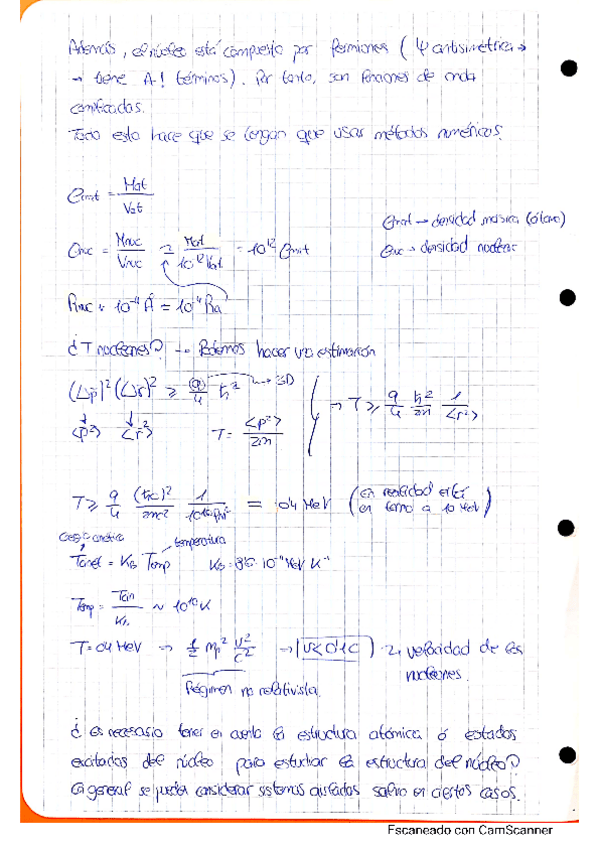 Además, el núcleo está compuesto por fermiones (Ψ antisimétrica →
→ tiene A! términos). Por tanto, son funciones de onda
complicadas.
Todo esto hace que se tengan que usar métodos numéricos.
ρmat = Mat / Vat
ρmat → densidad másica (átomo)
ρnuc = Mnuc / Vnuc ≃ Mat / 10⁻¹² Vat = 10¹² ρmat
ρnuc → densidad nuclear
Rnuc ≈ 10⁻⁴ Å = 10⁻⁴ Ra
¿T nucleones? → Podemos hacer una estimación
(Δp̄)² (Δr̄)² ≥ 9/4 ħ² → 3D
⟨p²⟩ ⟨r²⟩ T = ⟨p²⟩ / 2m → T ≥ 9/4 ħ²/2m 1/⟨r²⟩
T ≥ 9/4 (ħc)²/2mc² 1/ = 0'4 MeV (en realidad está en torno a 10 MeV)
temperatura
= KB Temp KB = 10⁻¹¹ MeV K⁻¹
Temp = Tcin / KB ~ 10¹⁰ K
T = 0'4 MeV → 1/2 mp² v²/c² → v < 0'1c velocidad de los
nucleones.
Régimen no relativista.
¿Es necesario tener en cuenta la estructura atómica ó estados
excitados del núcleo para estudiar la estructura del núcleo?
En general se pueden considerar sistemas aislados salvo en ciertos casos.
Escaneado con CamScanner